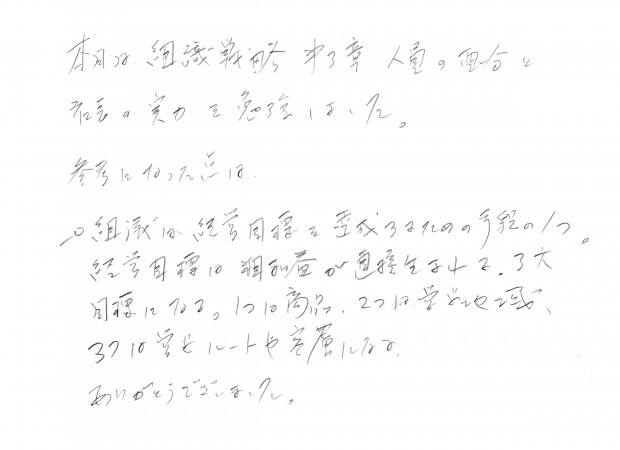 本日は、組織戦略 第3章 人員の配分と
社長の実力を勉強しました。
参考になった点は、
○組織は経営目標を達成するための手段の1つ。
経営目標は粗利益が直接生まれる、3大
目標になる。1つは商品、2つは営業地域、
3つは営業ルートや客層になる。
ありがとうございました。